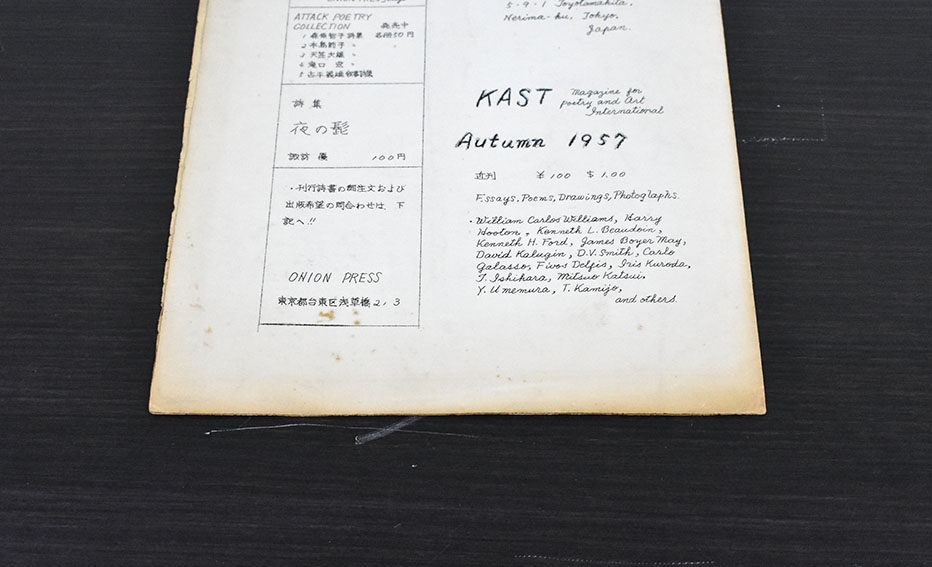 ATTACK POETRY
COLLECTION 発売中
1 森原智子詩集 各冊50円
2 木島始子 〃 〃
3 天笠次雄 〃
4 滝口 宏 〃
5 吉平義雄叙事詩集
詩 集
夜の髭
諏訪 優 100円
・刊行詩書の御注文および
出版希望の問合わせは、下
記へ!!
ONION PRESS
東京都台東区浅草橋2,3
5.9.1 Toyotamakita,
Nerima-ku, Tokyo,
Japan.
KAST Magazine for
poetry and Art
International
Autumn 1957
近刊 ¥100 $1.00
Essays, Poems, Drawings, Photographs.
・William Carlos Williams, Harry
Hooton, Kenneth L. Beaudoin,
Kenneth H. Ford, James Boyer May,
David Kalugin, D.V. Smith, Carlo
Galasso, Fivos Delfis, Iris Kuroda,
T. Ishihara, Mitsuo Katsui,
Y. Umemura, T. Kamijo,
and others.